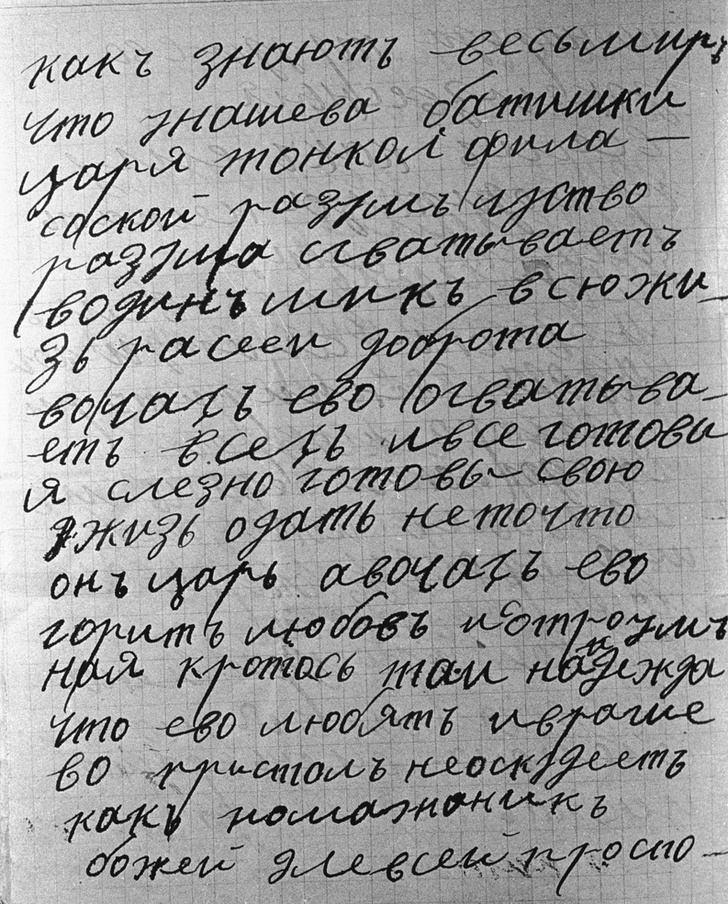 какъ знаютъ весь миръ
что унашева батишки
царя тонкой фила-
совской разумъ чуство
разума огватываетъ
водинъ микъ всю жи-
зь расеи доброта
вочахъ ево огватыва-
етъ всехъ ивсе готовы
я слезно готовы свою
жизь одать неточто
онъ царь авочахъ ево
горитъ любовъ иотроумъ
ная кротось таи надежда
что ево любятъ иврагие
во пристолъ неоскудеетъ
какъ помазнаникъ
божей длевсей проспо-